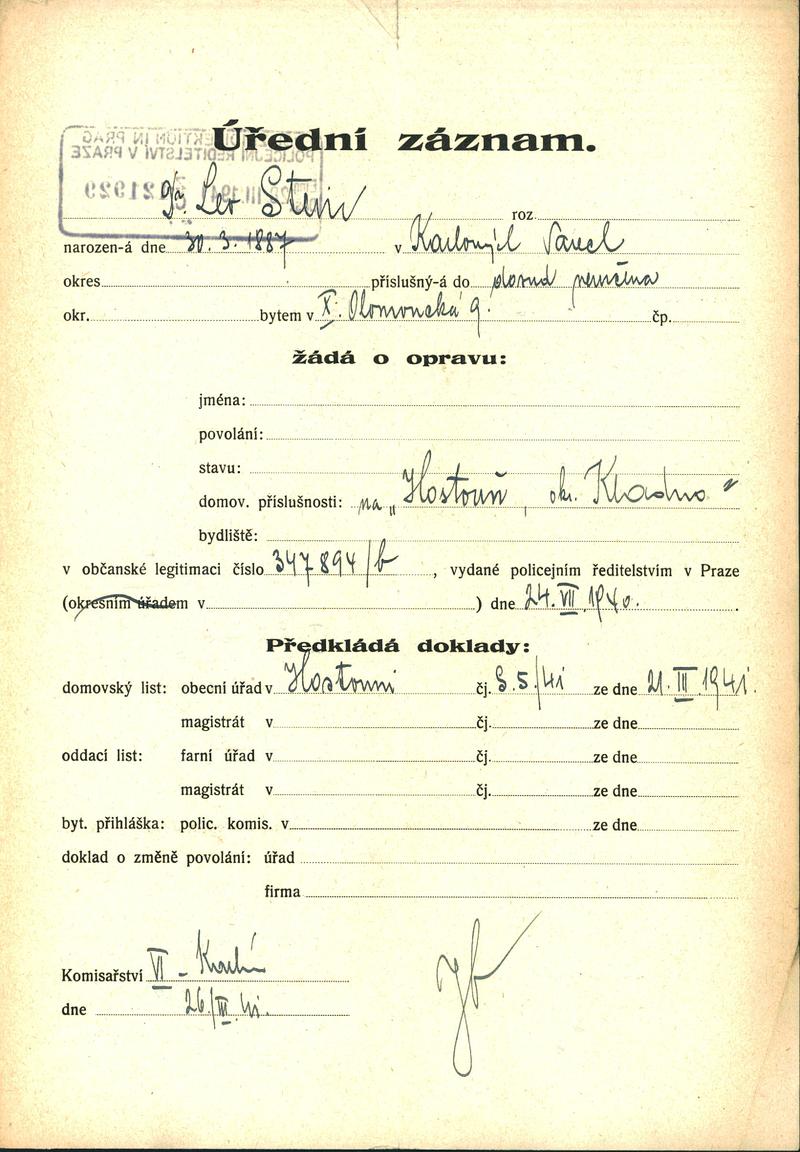 Úřední záznam.
POLIZEIDIREKTION IN PRAG
POLICEJNÍ ŘEDITELSTVÍ V PRAZE
21929
Dr. Leo Stein roz.
narozen-á dne 30. 3. 1887 v
okres příslušný-á do dosud neurčena
okr. bytem v X. Olomoucká 9. čp.
žádá o opravu:
jména:
povolání:
stavu:
domov. příslušnosti: na „Hostouň, okr. Kladno"
bydliště:
v občanské legitimaci číslo 347894/b, vydané policejním ředitelstvím v Praze
(okresním úřadem v ) dne 24. VII. 1940.
Předkládá doklady:
domovský list: obecní úřad v Hostouni čj. S.5./41 ze dne 21. III. 1941.
magistrát v čj. ze dne
oddací list: farní úřad v čj. ze dne
magistrát v čj. ze dne
byt. přihláška: polic. komis. v ze dne
doklad o změně povolání: úřad
firma
Komisařství VI - Karlín
dne 26/III. 41.